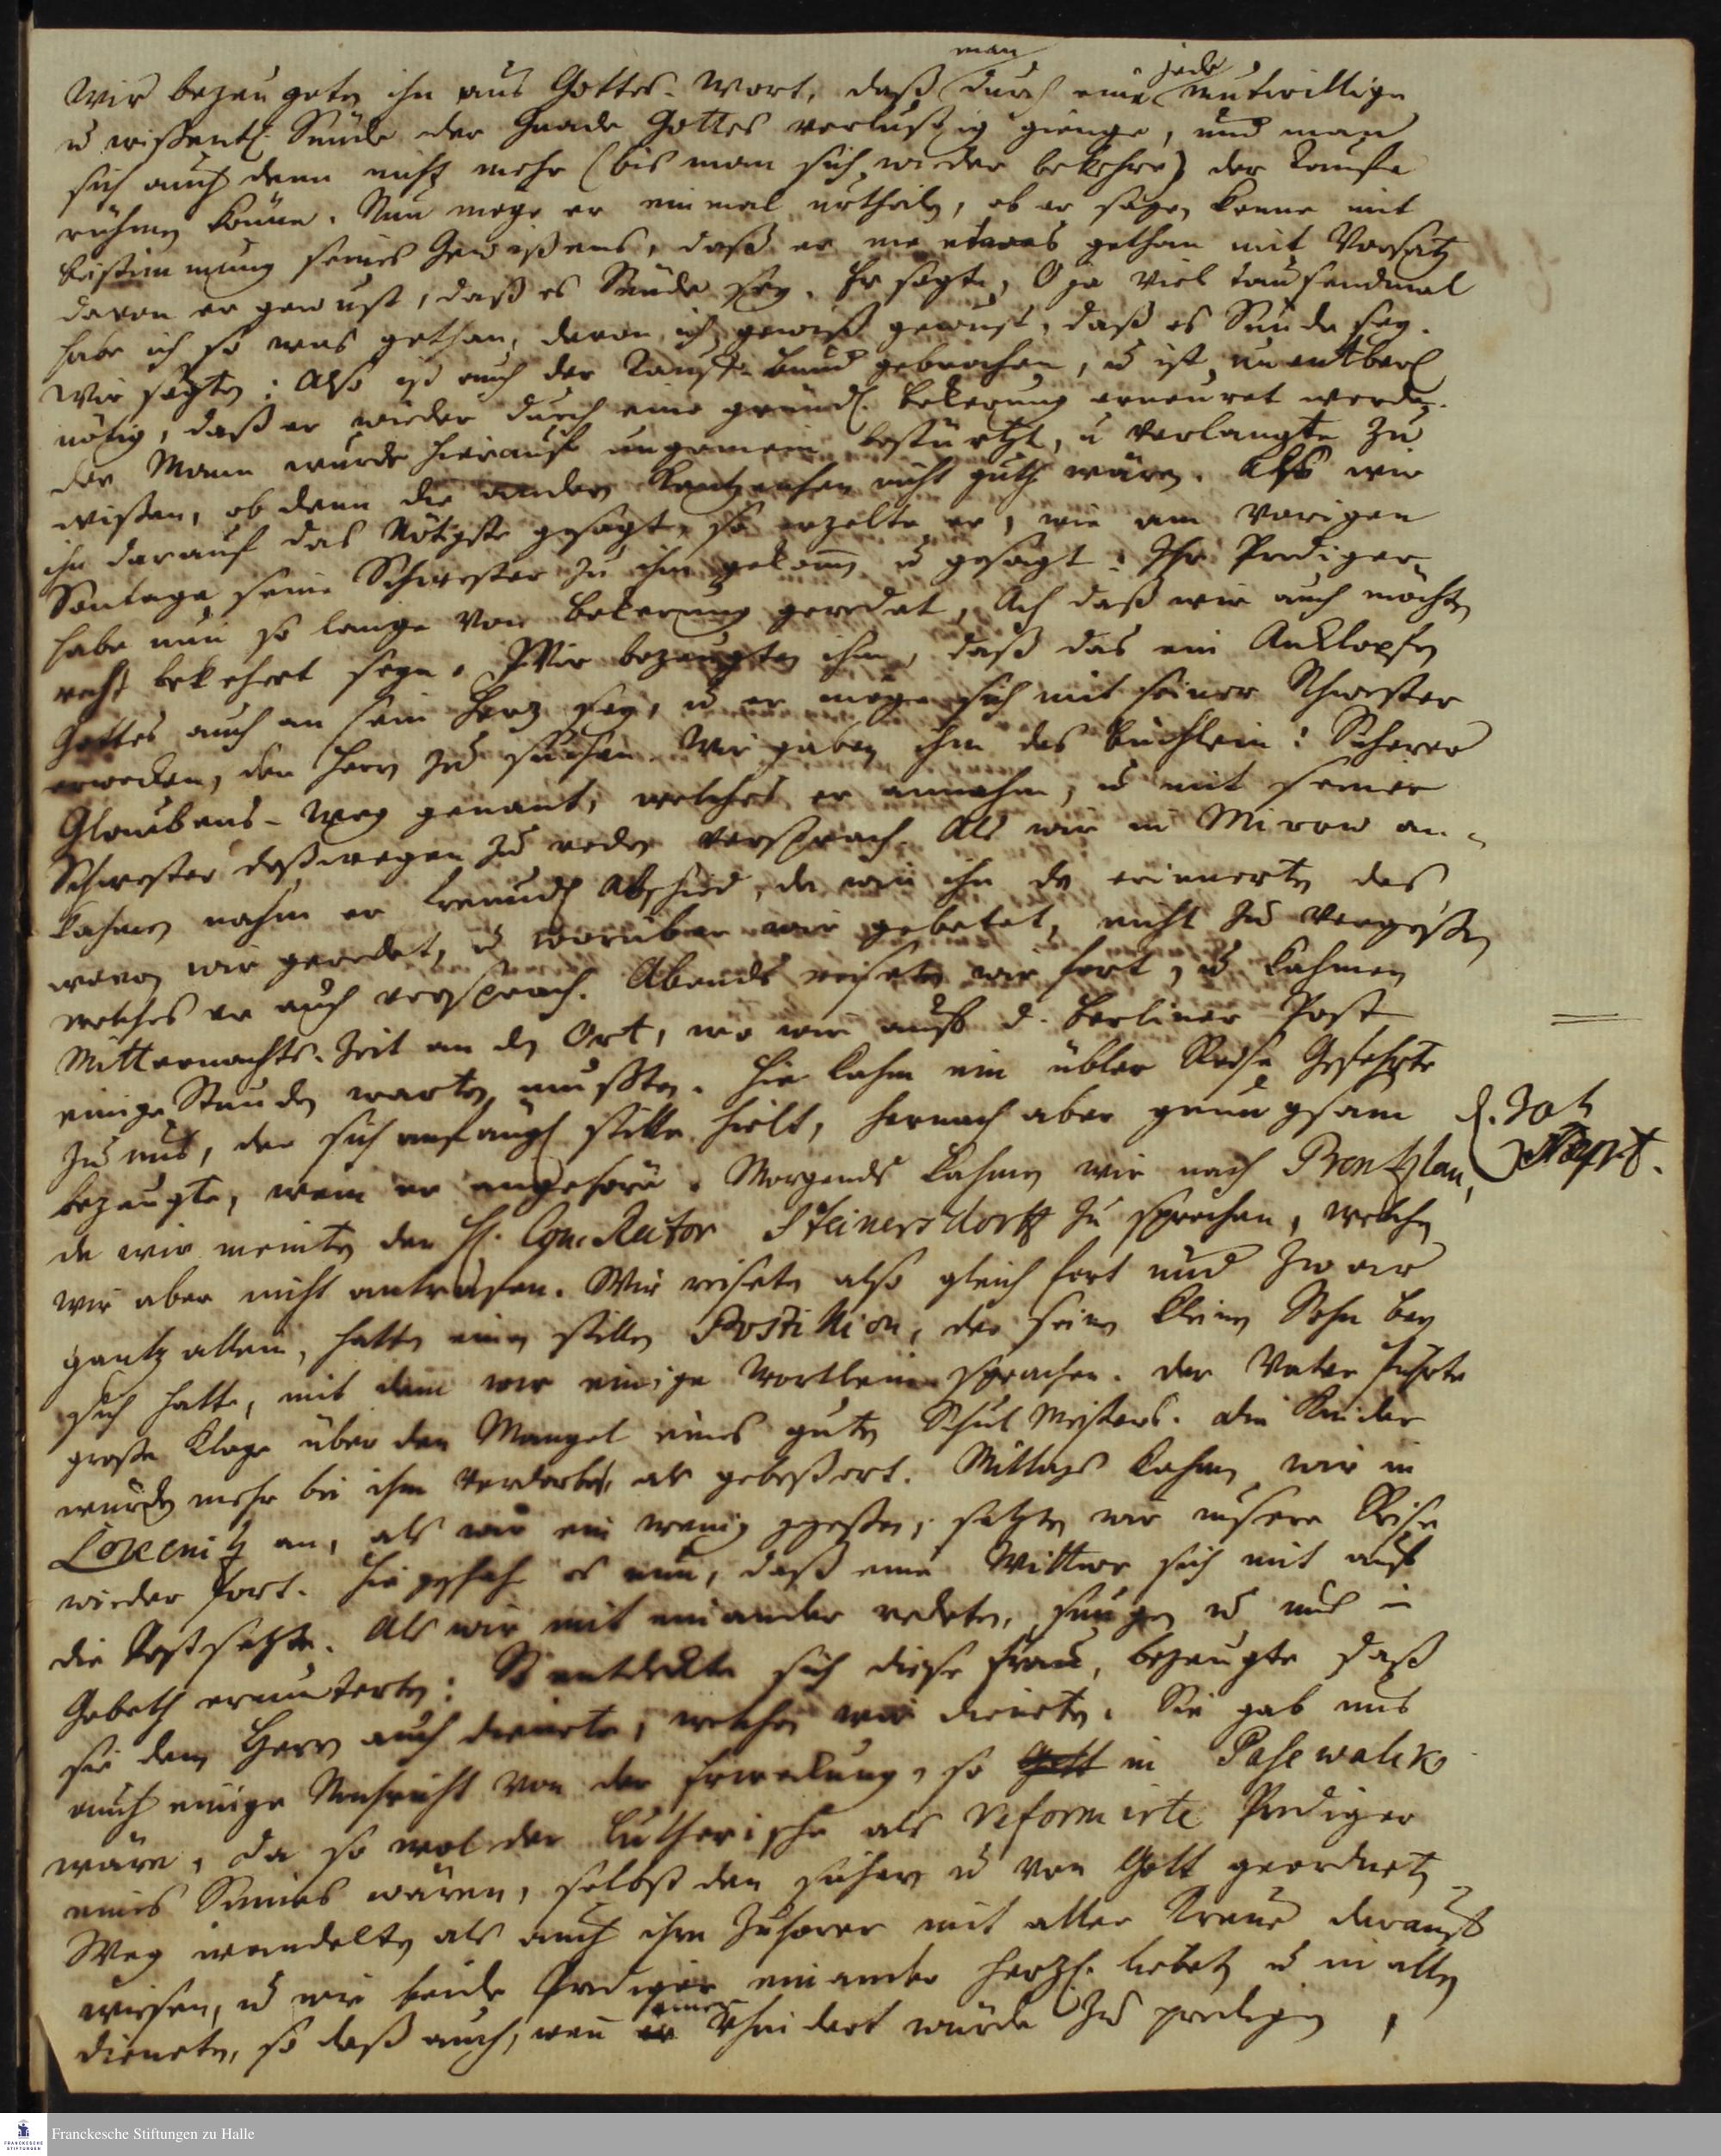 Wir bezeugeten ihn aus Gottes-Wort, daß man durch eine jede muthwillige
u wißentl. Sünde der Gnade Gottes verlustig gienge, und man
sich auch denn nicht mehr (bis man sich wieder bekehre) der Tauffe
rühmen könne. Nun möge er einmal urtheilen, ob er sagen könne mit
beistimmung seines Gewißens, daß er nie etwas gethan mit Vorsatz
davon er gewust, daß es Sünde sey. Er sagte, O ja viel tausendmal
habe ich so was gethan, davon ich gewiß gewust, daß es Sünde sey.
Wir sagten: Also ist auch der Tauff-bund gebrochen, u ist unentberl
nötig, daß er wieder durch eine gründl. bekerung erneuret werde.
der Mann wurde hierauf ungemein bestürtzt, u verlangte zu
wißen, ob denn die andern nicht guth wären. Als wir
ihn darauf das Nötigste gesagt, so erzelte er, wie am vorigen
Sontage seine Schwester zu ihm gekomen u gesagt: Ihr Prediger
habe nun so lange von bekerung geredet, Ach daß wir auch möchten
recht bekehret seyn. Wir bezeugten ihm, daß das ein Anklopfen
Gottes auch an sein Herz sey, u er möge sich mit seiner Schwester
erwecken, den Herrn zu suchen. Wir gaben ihm das büchlein: Sicherer
Glaubens-Weg genant, welches er annahm, u mit seiner
Schwester deßwegen zu reden versprach. Als wir in Mirow an-
kahmen nahm er freundl Abschied, da wir ihn da erinnerten das
wovon wir geredet, u worüber wir gebetet, nicht zu vergeßen
welches er auch versprach. Abends reiseten wir fort, u kahmen
Mitternachts-Zeit an den Ort, wo wir auff d. Berliner Post
einige Stunden warten mußten. Hie kahm ein übler Reise Gefehrte
zu uns, der sich anfängl stille hielt, hernach aber genungsam
bezeugte, wem er angehöre. Morgends kahmen wir nach Prentzlau, d. 30t Sept.
da wir meinten den H. ConRector Steinersdorff zu sprechen, welchen
wir aber nicht antrafen. Wir reiseten also gleich fort und zwar
gantz allein, hatten einen stillen Postillion, der seinen kleinen Sohn bey
sich hatte, mit dem wir einige Wortlein sprachen. der Vater führte
große Klage über den Mangel eines guten Schul Meisters. die Kinder
würden mehr bei ihm verderbet, als gebeßert. Mittags kahmen wir in
Löcenitz an, als wir ein wenig geßen, setzten wir unsere Reise
wieder fort. Hie geschah es nun, daß eine Wittwe sich mit auff
die Post setzte. Als wir mit einander redeten, sungen u uns im
Gebeth ermunterten: So entdekte sich diese Frau, bezeugte daß
sie dem Herrn auch dienete, welchen wir dieneten. Sie gab uns
auch einige Nachricht von der Erweckung, so Gott in Pasewalck
wäre, da so wol der Lutherische als reformirte Prediger
eines Sinnes wären, selbst den sichern u von Gott geordneten
Weg wandelten als auch ihre Zuhörer mit aller Treue darauff
wiesen, u wie beide Prediger einander herzl. liebeten u in allen
dieneten, so daß auch, wen er einer verhindert würde zu predigen,
Franckesche Stiftungen zu Halle